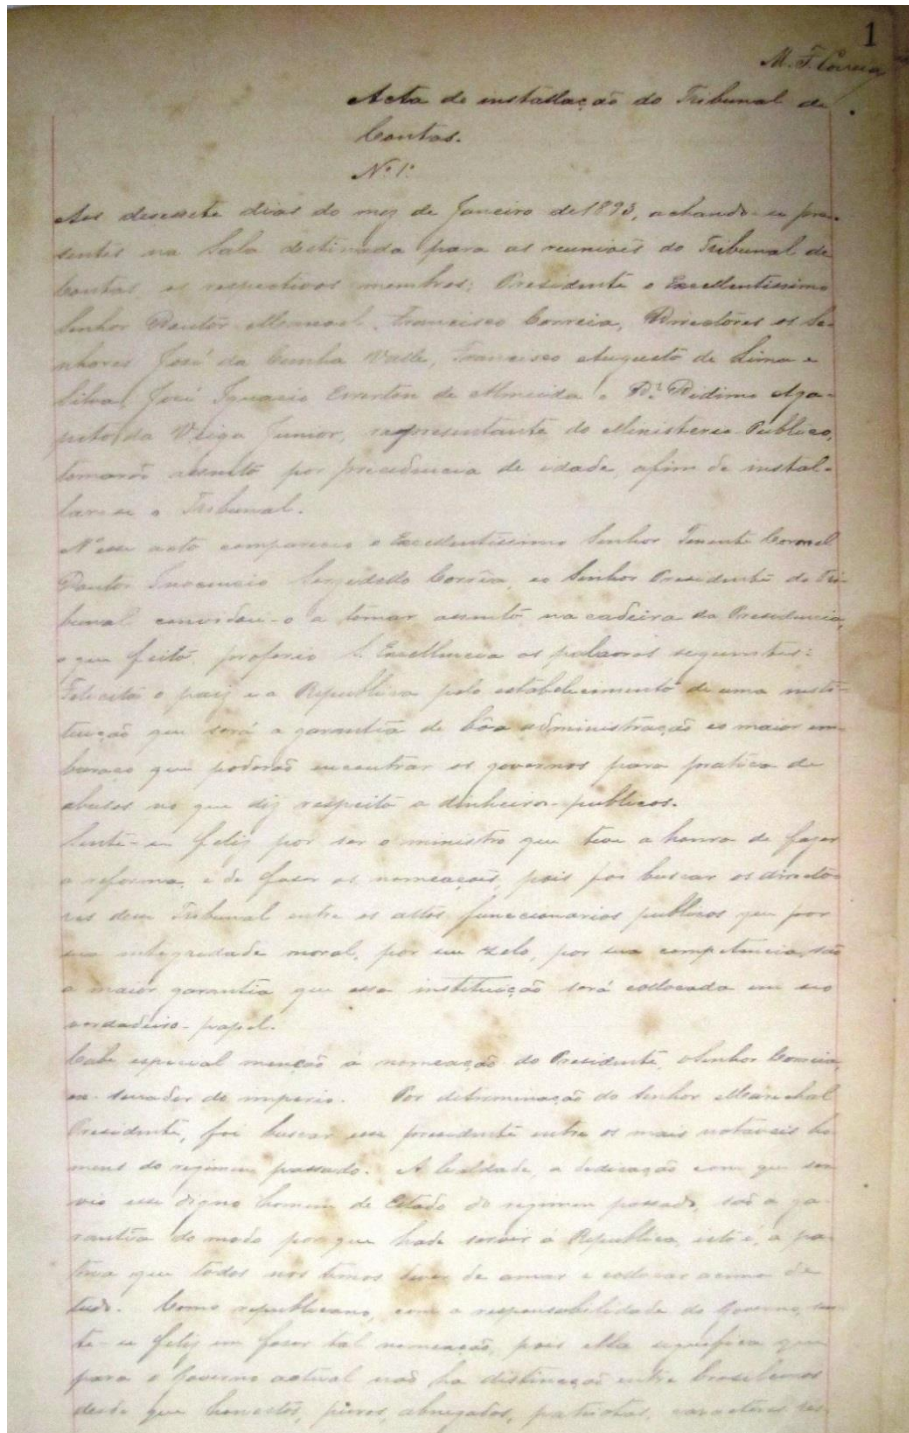 1
M. F. Correia
Acta de installação do Tribunal de
Contas.
Nº 1º
Aos desesete dias do mez de Janeiro de 1893, achando-se pre-
sentes na Sala destinada para as reuniões do Tribunal de
Contas os respectivos membros: Presidente o Excellentissimo
Senhor Doutor Manoel Francisco Correia, Directores os Se-
nhores José da Cunha Valle, Francisco Augusto de Lima e
Silva, José Ignacio Ewerton de Almeida e Dr. Didimo Aga-
pito da Veiga Junior, representante do Ministerio Publico,
tomarão assento por precedencia de idade, afim de instal-
lar-se o Tribunal.
N'esse acto compareceu o Excellentissimo Senhor Tenente Coronel
Doutor Innocencio Serzedello Corrêa, eo Senhor Presidente do Tri-
bunal convidou-o a tomar assento na cadeira da Presidencia,
o que feito, proferio S. Excellencia as palavras seguintes:
Felicito o paiz e a Republica pelo estabelecimento de uma insti-
tuição que será a garantia de bôa administração eo maior em-
baraço que poderão encontrar os governos para pratica de
abusos no que diz respeito a dinheiros publicos.
Sente-se feliz por ser o ministro que teve a honra de fazer
a reforma e de fazer as nomeações, pois foi buscar os directo-
res desse Tribunal entre os altos funccionarios publicos que por
sua integridade moral, por seu zelo, por sua competencia, são
a maior garantia que essa instituição será collocada em seo
verdadeiro papel.
Cabe especial menção a nomeação do Presidente, o Senhor Correia,
ex-senador do imperio. Por determinação do Senhor Marechal
Presidente, foi buscar esse presidente entre os mais notaveis ho-
mens do regimen passado. A lealdade, a dedicação com que ser-
vio esse digno homem de Estado do regimen passado, são a ga-
rantia do modo por que hade servir á Republica, isto é, a pa-
tria que todos nós temos dever de amar e collocar acima de
tudo. Como republicano, com a responsabilidade do Governo, sen-
te-se feliz em fazer tal nomeação, pois ella significa que
para o Governo actual não ha distincção entre brasileiros
desde que honestos, puros, abnegados, patriotas, caracteres